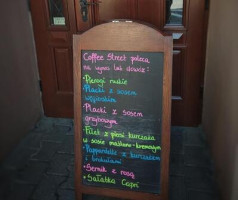 Coffee Street poleca
na wynos lub dowóz:
• Pierogi ruskie
• Placki z sosem
węgierskim
• Placki z sosem
grzybowym
• Filet z piersi kurczaka
w sosie maślano-kremowym
• Pappardelle z kurczakiem
i brokułami
• Sernik z rosą
• Sałatka Capri